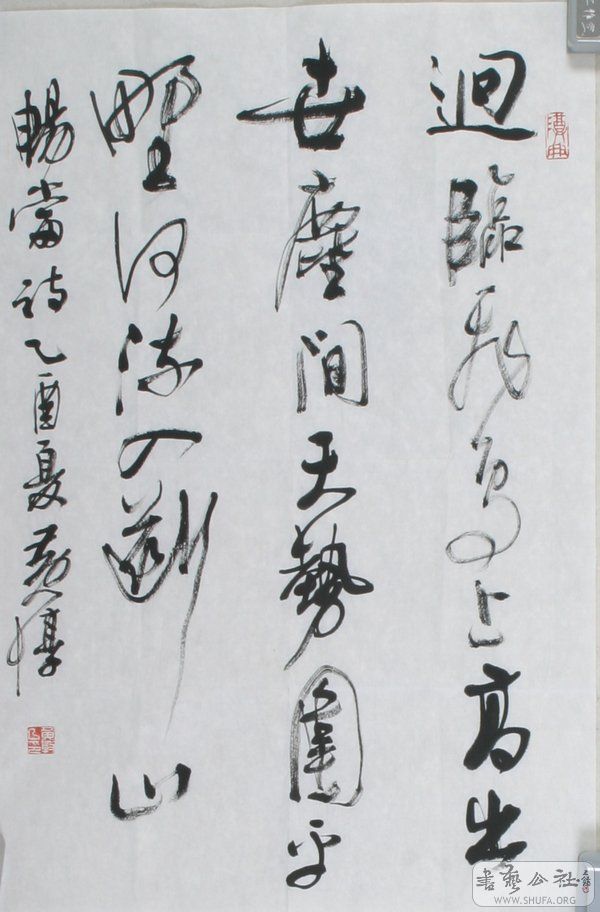 迥臨飛鳥上高出
世塵間天勢圍平
野河流入斷山
暢當詩乙酉夏黃惇
書藝公社
WWW.SHUFA.ORG